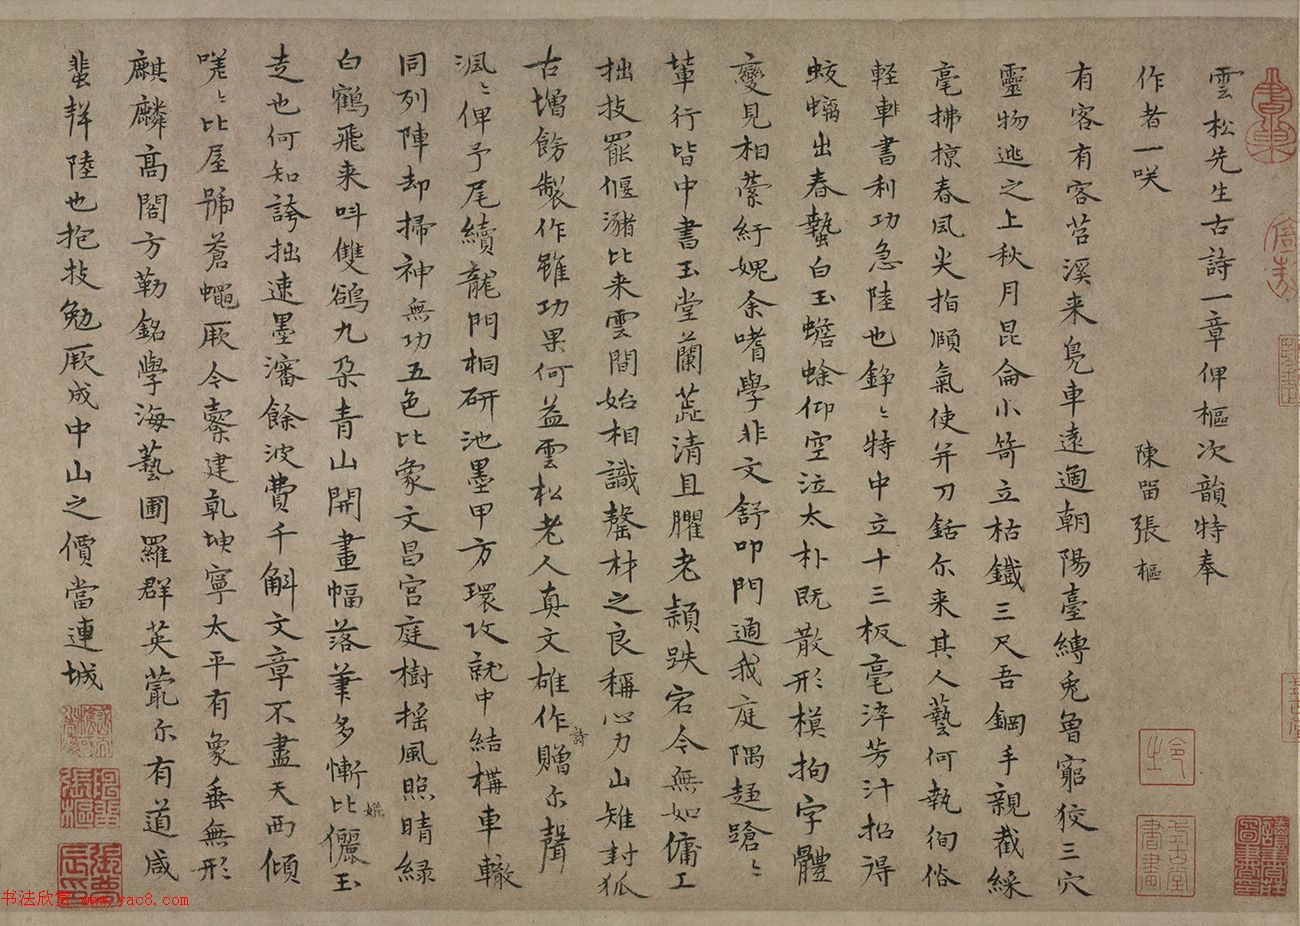 雲松先生古詩一章俾樞次韻特奉
作者一咲
陳留張樞
有客有客苕溪来鳧車遠適朝陽臺縛兎魯窮狡三穴
靈物逃之上秋月昆侖小笴立枯鐵三尺吾鋼手親截綵
毫拂掠春風尖指頤氣使并刀銛尔来其人藝何執徇俗
軽書利功急陸也錚〻特中立十三板毫淬芳汁招得
蛟螭出春蟄白玉蟾蜍仰空泣太朴既散形模拘字體
變見相縈紆媿余嗜學非文舒叩門過我庭隅趦蹌〻
輩行皆中書玉堂蘭茝清且臞老潁跌宕今無如傭工
拙技罷偃瀦比来雲間始相識罄材之良稱心力山雉封狐
古増飭製作雖功果何益雲松老人真文雄作詩贈尓聲
渢〻俾予尾續龍門桐研池墨甲方環攻就中結構車轍
同列陣却掃神無功五色比象文昌宮庭樹揺風照晴緑
白鶴飛来呌雙鵒九朶青山開畫幅落筆多慚比儷玉
走也何知誇拙速墨瀋餘波費千斛文章不盡天西傾
嘵〻比屋號蒼蠅厥今櫜建乹坤寧太平有象垂無形
麒麟髙閣方勒銘學海藝圃羅群英尓有道咸
蜚陸也抱技勉厥成中山之價當連城
书法欣赏 www.yac8.com